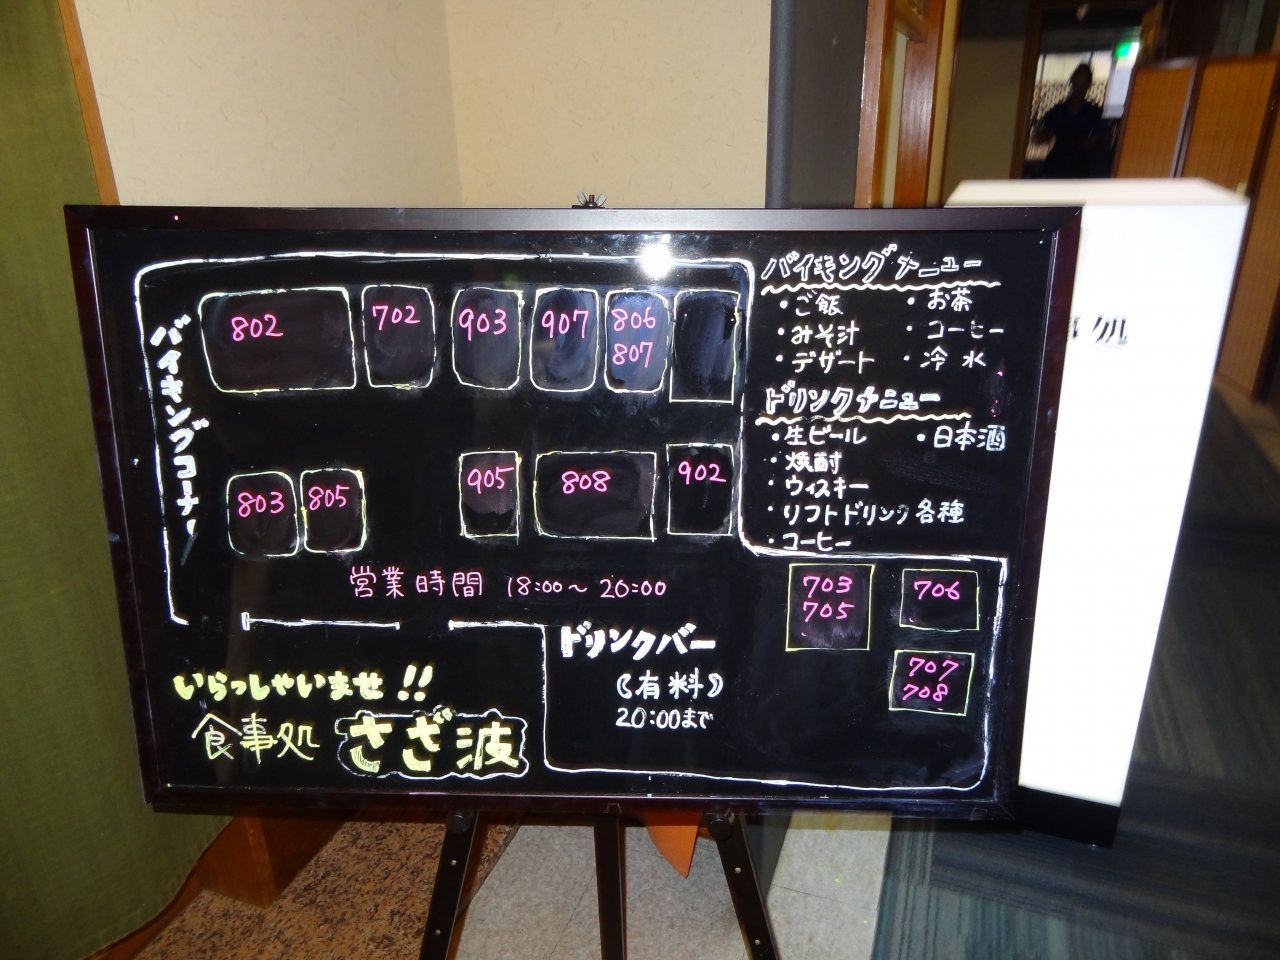 バイキングメニュー
・ご飯 ・お茶
・みそ汁 ・コーヒー
・デザート ・冷水
ドリンクメニュー
・生ビール ・日本酒
・焼酎
・ウィスキー
・リフトドリンク各種
・コーヒー
バイキングコーナー
802 702 903 907 806
807
803 805 905 808 902
営業時間 18:00〜20:00
703
705
706
707
708
ドリンクバー
(有料)
20:00まで
いらっしゃいませ!!
食事処 さざ波
処